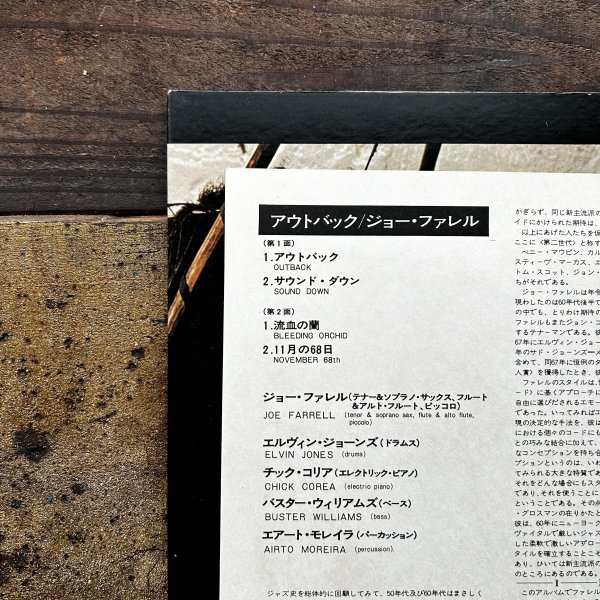 アウトバック/ジョー・ファレル
(第1面)
1.アウトバック
OUTBACK
2.サウンド・ダウン
SOUND DOWN
(第2面)
1.流血の蘭
BLEEDING ORCHID
2.11月の68日
NOVEMBER 68th
ジョー・ファレル(テナー&ソプラノ・サックス、フルート
&アルト・フルート、ピッコロ)
JOE FARRELL (tenor & soprano sax, flute & alto flute,
piccolo)
エルヴィン・ジョーンズ(ドラムス)
ELVIN JONES (drums)
チック・コリア(エレクトリック・ピアノ)
CHICK COREA (electric piano)
バスター・ウィリアムズ(ベース)
BUSTER WILLIAMS (bass)
エアート・モレイラ(パーカッション)
AIRTO MOREIRA (percussion)
ジャズ史を総体的に回顧してみて、50年代及び60年代はまさしく
かぎらず、同じ新主流派の
イドにかけられた期待は、
以上にあげた人たちを仮
ここに〈第二世代〉と称す
ベニー・モウピン、カル
スティーヴ・マーカス、エ
トム・スコット、ジョン・
ちがそれである。
ジョー・ファレルは年令
現われたのは60年代後半で
の中でも、とりわけ期待の
ファレルもまたジョン・コ
するテナーマンである。彼
67年にエルヴィン・ジョー
年のサド・ジョーンズ=メ
含めて、同67年に恒例のダ
人賞》を獲得したとき、彼
ファレルのスタイルは、
ード》に基くアプローチに
自由に選びだされるエモー
であった。いってみればエ
現の決定的な手法を、彼は
における個々のコードにも
との巧みな結合に加えて、
なコンセプションを持ち合
プションというのは、いわ
てみられる大きな特質であ
それをどんな場合にもスタ
であり、それを使うことに
ということである。その点
・グロスマンの在りかたと
彼は、60年にニューヨーク
ヴァイタルで厳しいジャズ
した柔軟で激しいアドロー
タイルを確立することこそ
あり、ひいては新主流派の
のところにあるのである。
1
このアルバムでファレル